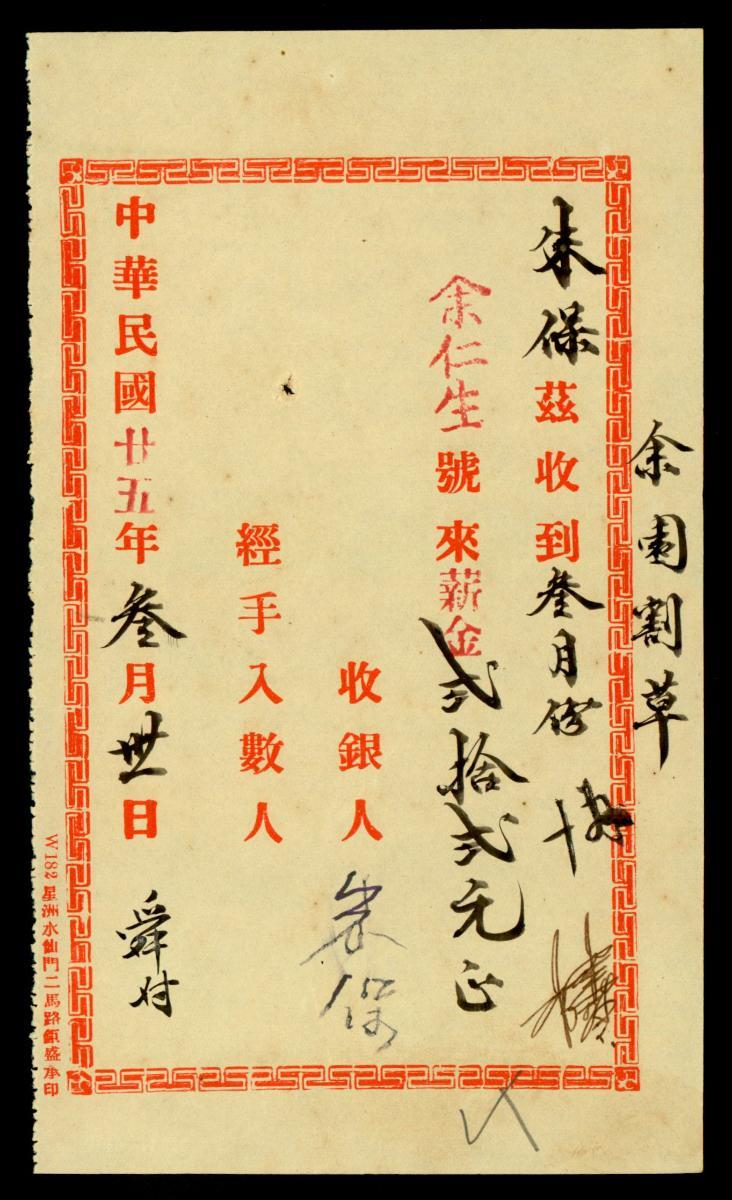 余園割草
朱保茲收到叁月份
余仁生號來薪金弍拾弍元正
收銀人 朱保
經手入數人
中華民國廿五年叁月卅一日 舜付
W182 星洲水仙門二馬路領盛承印